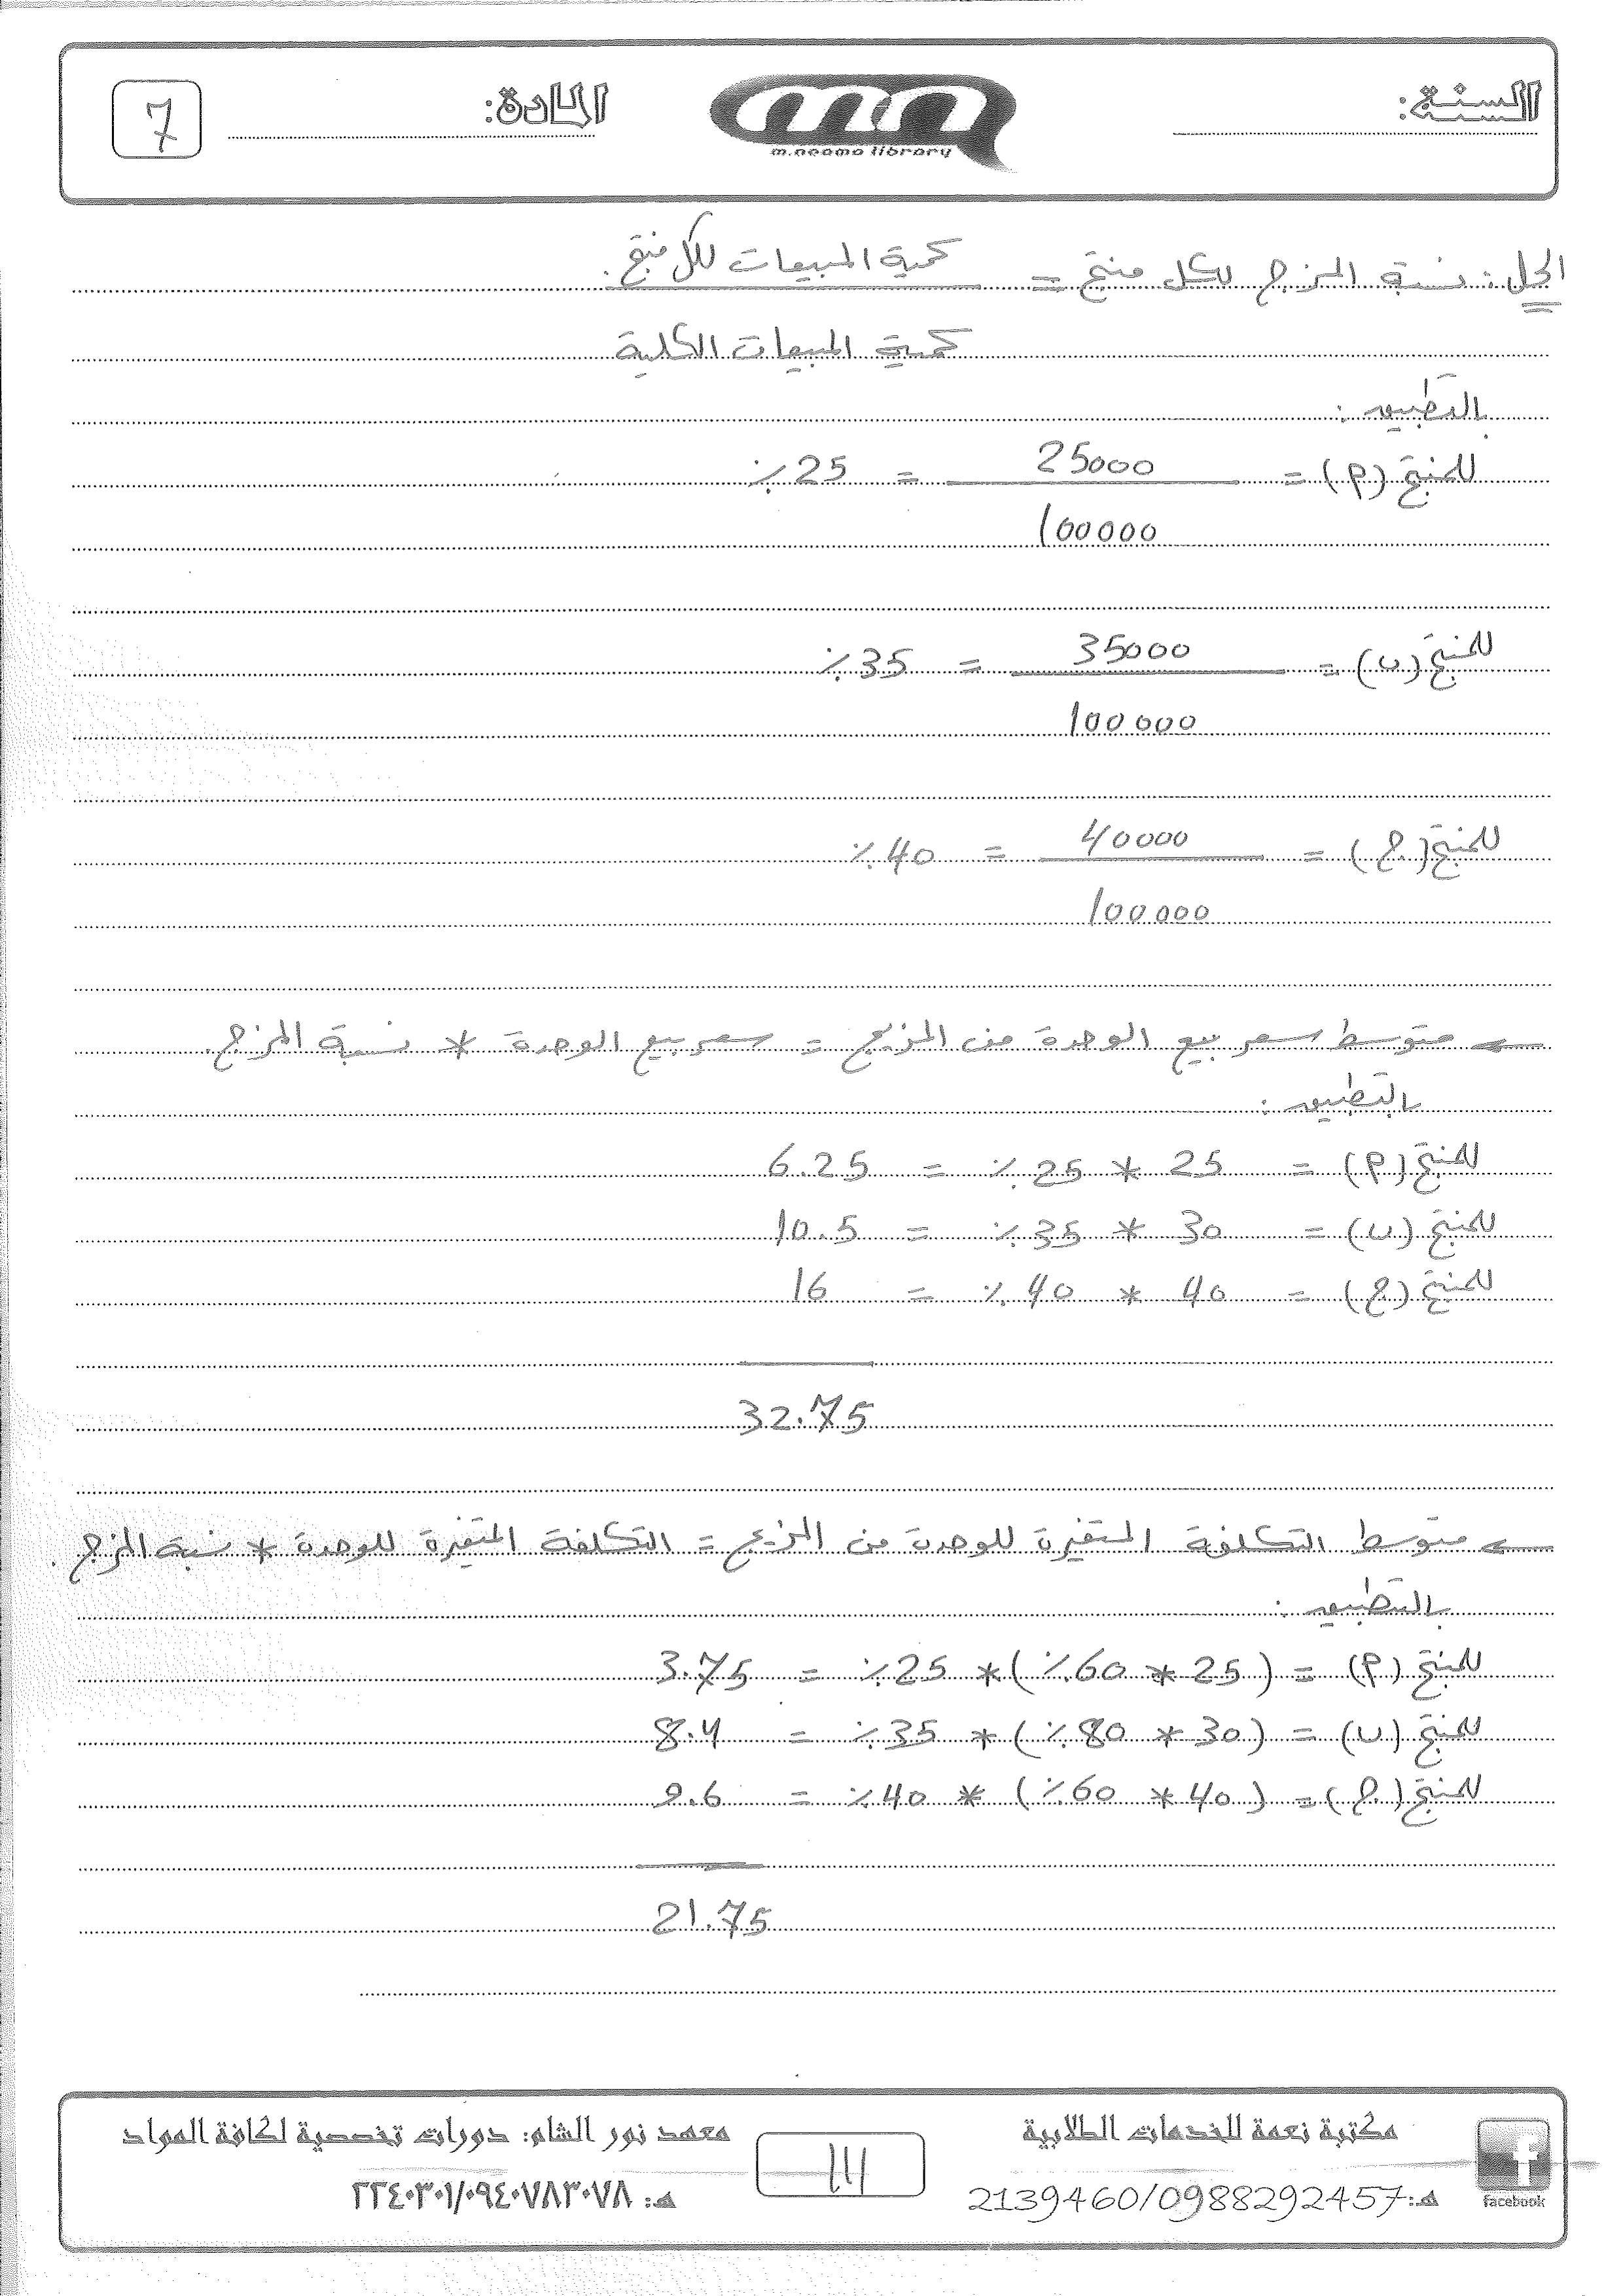 السنة:
m.neama library
المادة:
7
الحل: نسبة المزج لكل منتج = كمية المبيعات لكل منتج.
كمية المبيعات الكلية
بالتطبيق:
للمنتج (م) = 25000 = 25 ٪
100000
للمنتج (ب) = 35000 = 35 ٪
100000
للمنتج (ج) = 40000 = 40 ٪
100000
← متوسط سعر بيع الوحدة من المزيج = سعر بيع الوحدة * نسبة المزج.
بالتطبيق:
للمنتج (م) = 25 * 25 ٪ = 6.25
للمنتج (ب) = 30 * 35 ٪ = 10.5
للمنتج (ج) = 40 * 40 ٪ = 16
32.75
← متوسط التكلفة المتغيرة للوحدة من المزيج = التكلفة المتغيرة للوحدة * نسبة المزج.
بالتطبيق:
للمنتج (م) = (25 * 60 ٪) * 25 ٪ = 3.75
للمنتج (ب) = (30 * 80 ٪) * 35 ٪ = 8.4
للمنتج (ج) = (40 * 60 ٪) * 40 ٪ = 9.6
21.75
مكتبة نعمة للخدمات الطلابية
هـ: 2139460/0988292457
facebook
معهد نور الشام: دورات تخصصية لكافة المواد
هـ: ٢٢٤٠٣٠١/٠٩٤٠٧٨٣٠٧٨